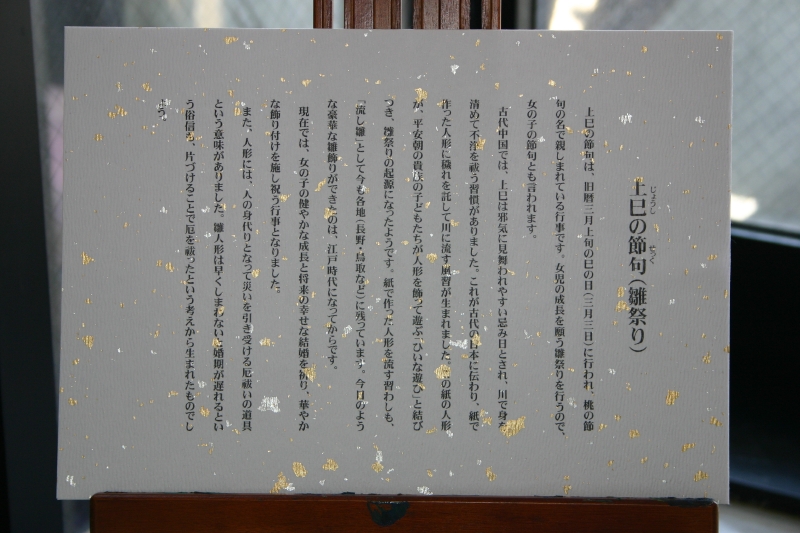 上巳の節句（雛祭り）
じょうし
せっく
上巳の節句は、旧暦三月上旬の巳の日（三月三日）に行われ、桃の節
句の名で親しまれている行事です。女児の成長を願う雛祭りを行うので、
女の子の節句とも言われます。
古代中国では、上巳は邪気に見舞われやすい忌み日とされ、川で身を
清めて不浄を祓う習慣がありました。これが古代の日本に伝わり、紙で
作った人形に穢れを託して川に流す風習が生まれました。この紙の人形
が、平安朝の貴族の子どもたちが人形を飾って遊ぶ「ひいな遊び」と結び
つき、雛祭りの起源になったようです。紙で作った人形を流す習わしも、
「流し雛」として今も各地（長野・鳥取など）に残っています。今日のよう
な豪華な雛飾りができたのは、江戸時代になってからです。
現在では、女の子の健やかな成長と将来の幸せな結婚を祈り、華やか
な飾り付けを施し祝う行事となりました。
また、人形には、人の身代りとなって災いを引き受ける厄祓いの道具
という意味がありました。雛人形は早くしまわないと婚期が遅れるとい
う俗信も、片づけることで厄を祓ったという考えから生まれたものでし
ょう。